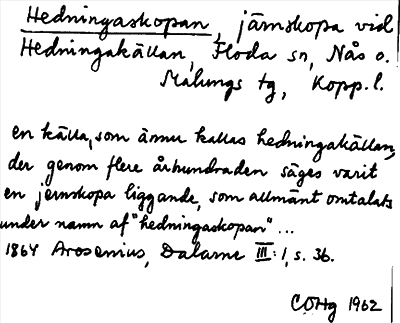 Hedningaskopan, järnskopa vid
Hedningakällan, Floda sn, Nås o.
Malungs tg, Kopp. l.
en källa, som ännu kallas hedningakällan,
der genom flere århundraden säges varit
en jernskopa liggande, som allmänt omtalats
under namn af "hedningaskopan" ...
1864 Arosenius, Dalarne III: 1, s. 36.
COHg 1962